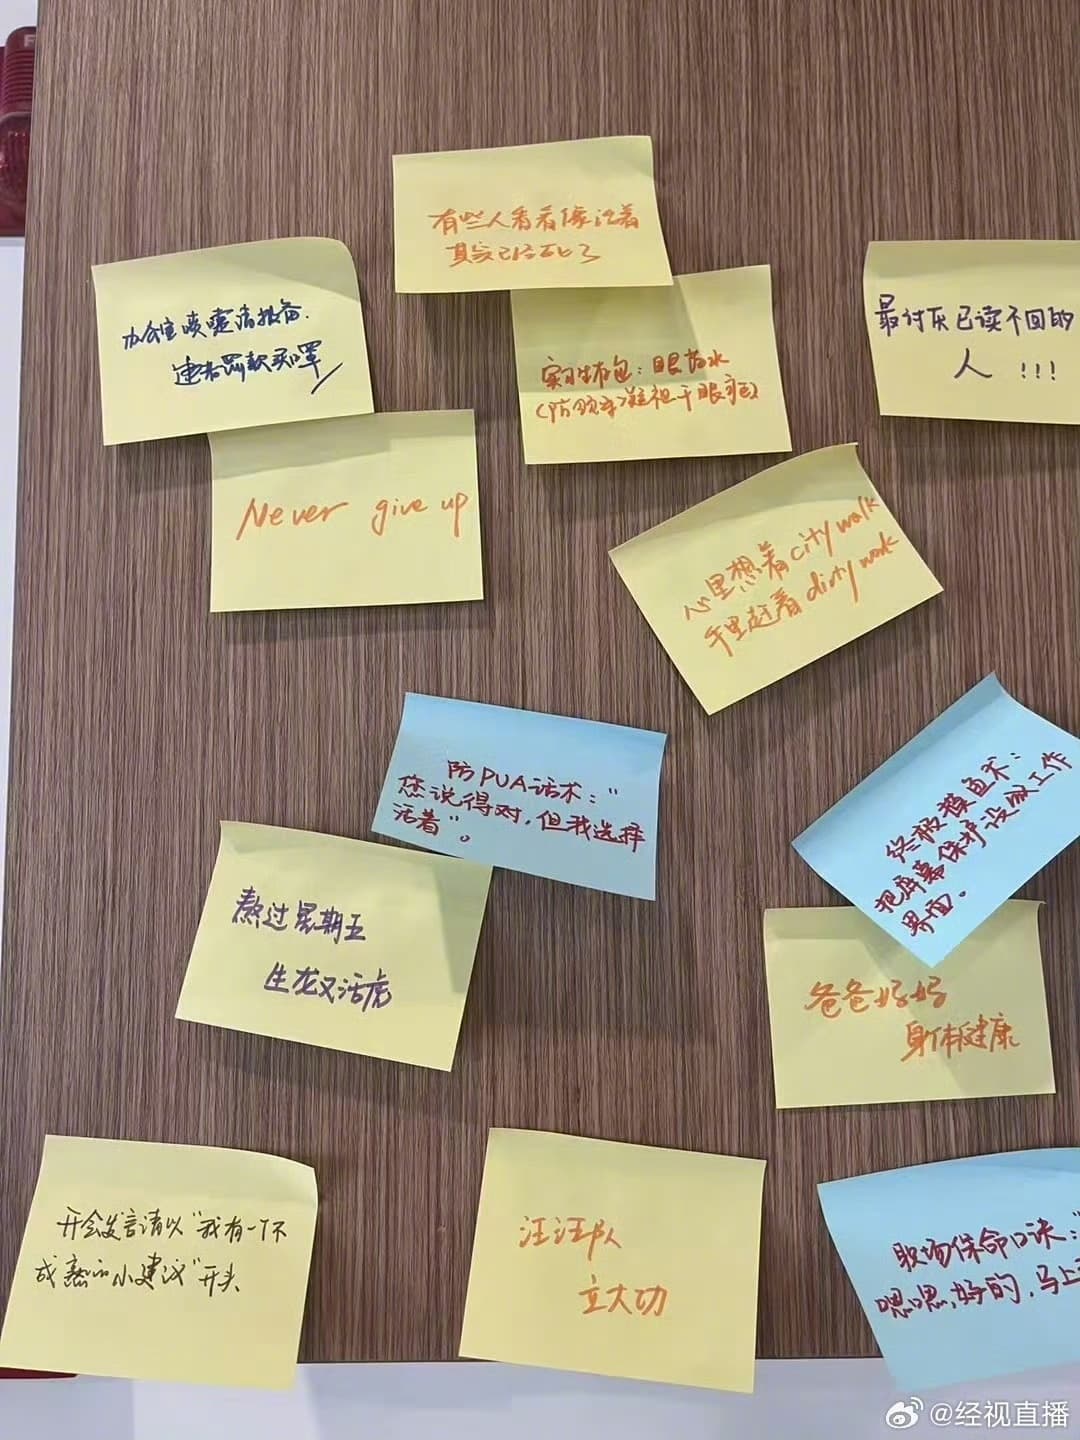 有些人看着像活着
其实已经死了
办公室喷嚏请报备.
违者罚款买口罩
实习生存包：眼药水
(防领导
干眼症)
最讨厌已读不回的
人 !!!
Never give up
心里想着city walk
手里赶着dirty work
防PUA话术："
您说得对，但我选择
活着"。
终极摸鱼术：
把屏幕保护设成工作
界面。
熬过星期五
生龙又活虎
爸爸妈妈
身体健康
开会发言请以"我有一个不
成熟的小建议"开头
汪汪队
立大功
职场保命口诀："
嗯嗯,好的,马上
@经视直播